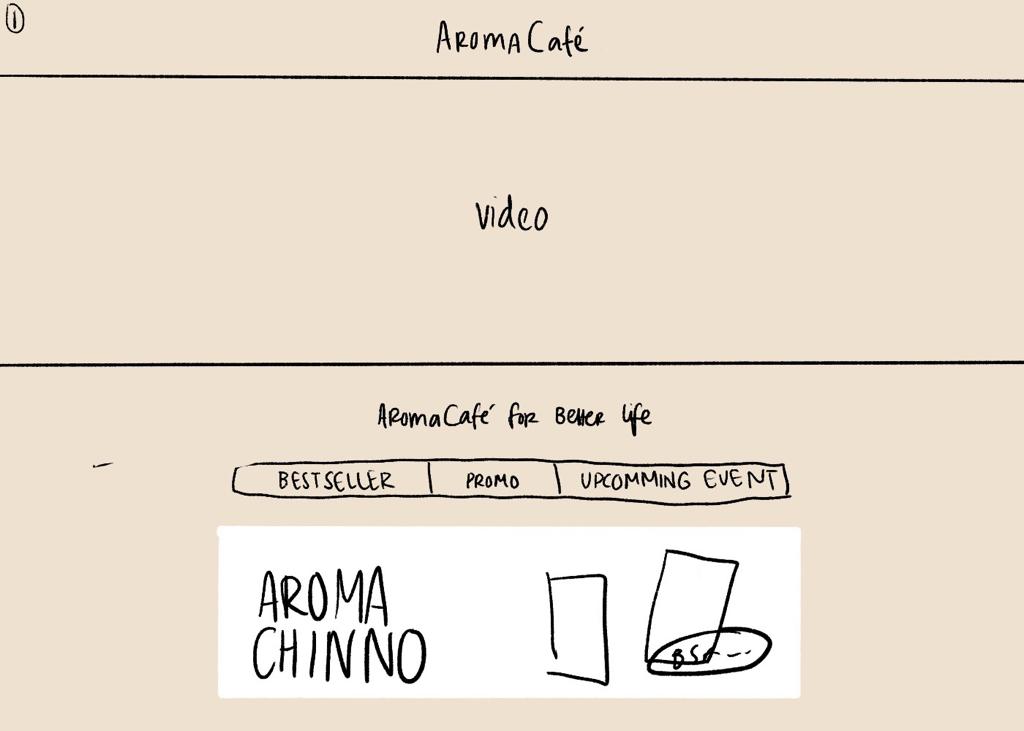 1
AROMA Café
video
AROMA Café for Better life
BESTSELLER PROMO UPCOMMING EVENT
AROMA
CHINNO